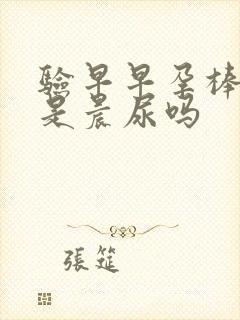 验早早孕棒
是晨尿吗
張筵